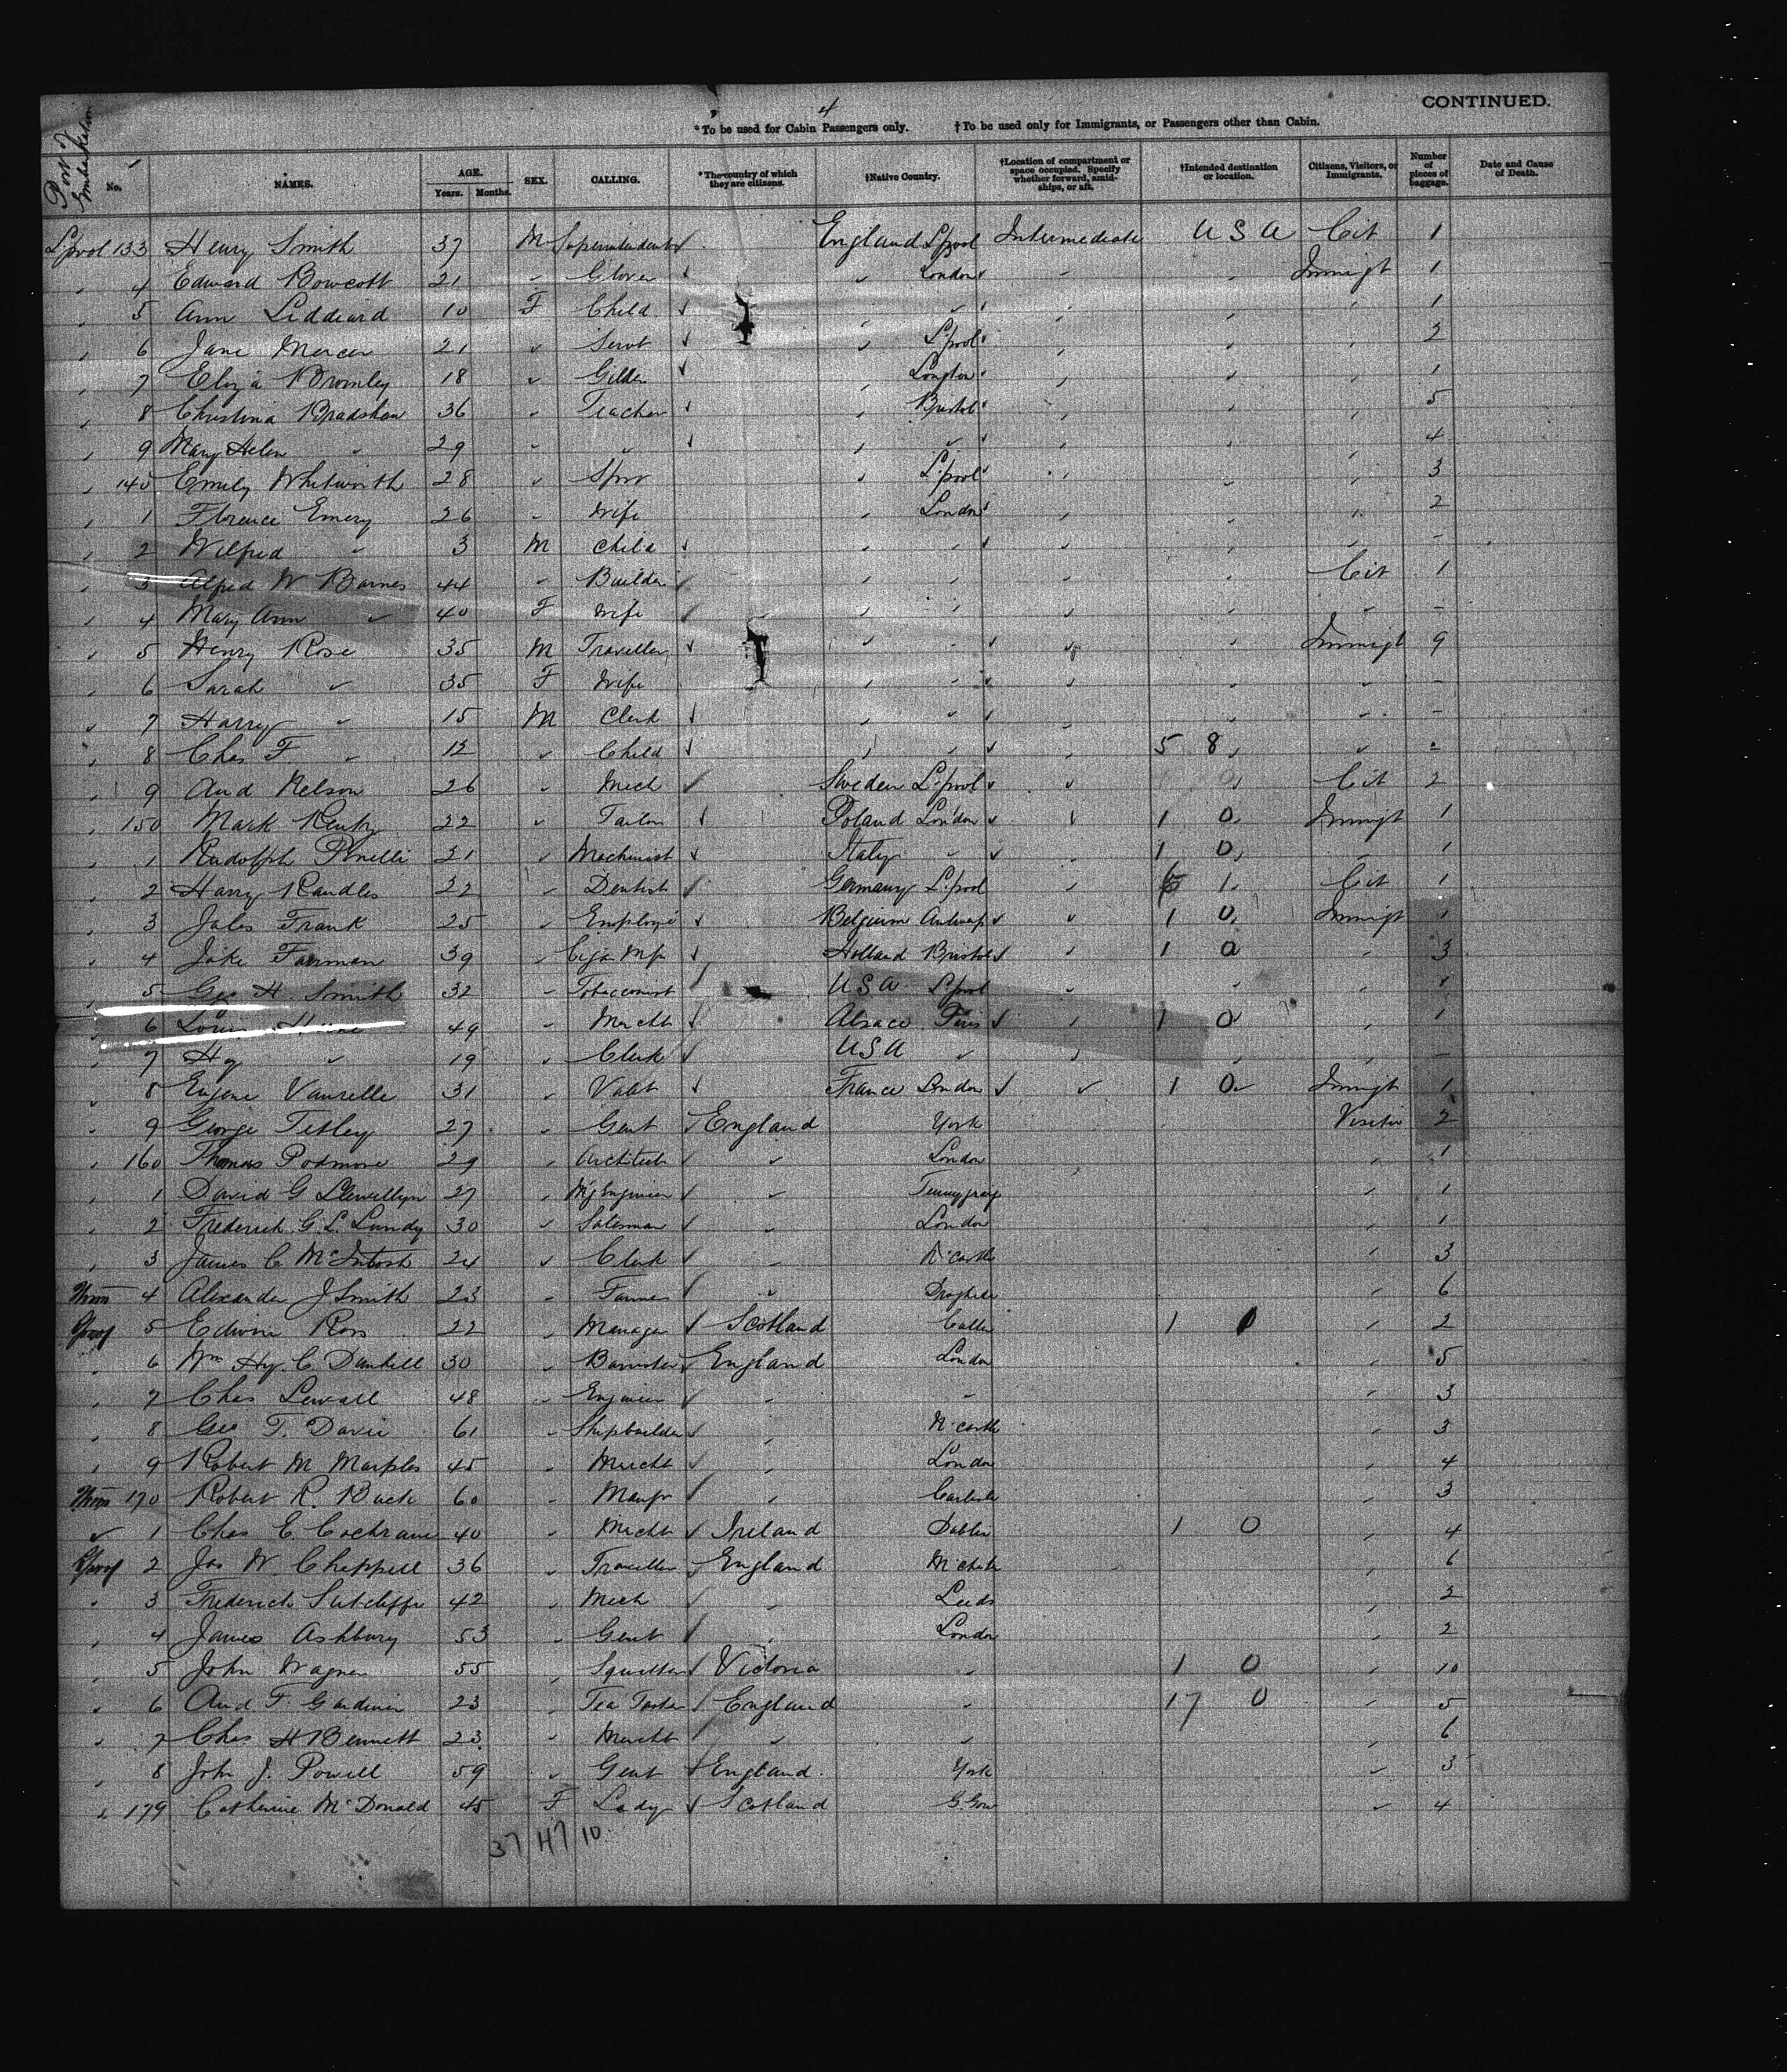 4
CONTINUED.
*To be used for Cabin Passengers only. †To be used only for Immigrants, or Passengers other than Cabin.
Port of Embarkation
No. NAMES. AGE. Years. Months. SEX. CALLING. *The country of which they are citizens. †Native Country. †Location of compartment or space occupied. Specify whether forward, amidships, or aft. †Intended destination or location. Citizens, Visitors, or Immigrants. Number of pieces of baggage. Date and Cause of Death.
L'pool 133 Henry Smith 37 M Superintendent England L'pool Intermediate U S A Cit 1
" 4 Edward Bowcott 21 " Glover " London " " Immigt 1
" 5 Ann Liddeard 10 F Child " " " " " 1
" 6 Jane Mercer 21 " Servt " L'pool " " " 2
" 7 Eliza Bromley 18 " Gilder " Longton " " " 1
" 8 Christina Bradshaw 36 " Teacher " Bristol " " " 5
" 9 Mary Helen " 29 " " " " " " " 4
" 140 Emily Whitworth 28 " Spr " L'pool " " " 3
" 1 Florence Emery 26 " Wife " London " " " 2
" 2 Wilfred " 3 M Child " " " " " -
" 3 Alfred W Barnes 44 " Builder " " " " Cit 1
" 4 Mary Ann " 40 F Wife " " " " " -
" 5 Henry Rose 35 M Traveller " " " " Immigt 9
" 6 Sarah " 35 F Wife " " " " " -
" 7 Harry " 15 M Clerk " " " " " -
" 8 Chas F " 12 " Child " " " 5 8 " -
" 9 And Nelson 26 " Mech Sweden L'pool " Cit 2
" 150 Mark 22 " Tailor Poland London " 1 0 Immigt 1
" 1 Rudolph 31 " Machinist Italy " " 1 0 " 1
" 2 Harry Randles 22 " Dentist Germany L'pool " 1 Cit 1
" 3 Jules Frank 25 " Employé Belgium Antwerp " 1 0 Immigt 1
" 4 Jake Farrman 39 " Cigar Mfr Holland Bristol " 1 0 " 3
" 5 Geo H. Smith 32 " Tobacconist U S A L'pool " " "
" 6 Louis 49 " Mercht Alsace Paris " 1 0 " 1
" 7 Hy " 19 " Clerk U S A " " " " -
" 8 Eugene Vaurelle 31 " Valet France London " 1 0 Immigt 1
" 9 George Tetley 27 " Gent England York Visitor 2
" 160 Thomas Podmore 29 " Architect " London " 1
" 1 David G Llewellyn 27 " Mg Engineer " " 1
" 2 Frederick G. L. Lundy 30 " Salesman " London " 1
" 3 James C McIntosh 24 " Clerk " N'castle " 3
4 Alexander J Smith 23 " Farmer " Drogheda " 6
L'pool 5 Edwin Ross 22 " Manager Scotland 1 0 " 2
" 6 Wm Hy. C. 30 " Barrister England London " 5
" 7 Chas Lewall 48 " Engineer " " " 3
" 8 Geo T. Davie 61 " Shipbuilder " N'castle " 3
" 9 Robert M Marples 45 " Mercht " London " 4
170 Robert R. Buck 60 " Manfr " Carlisle " 3
" 1 Chas E Cochrane 40 " Mercht Ireland Dublin 1 0 " 4
L'pool 2 Jas W. Cheppell 36 " Traveller England M'chstr " 6
" 3 Frederick Sutcliffe 42 " Mech " Leeds " 2
" 4 James Ashbury 53 " Gent " London " 2
" 5 John Wagner 55 " Squatter Victoria " 1 0 " 10
" 6 And. F. Gardiner 23 " Tea Taster England " 17 0 " 5
" 7 Chas H Bennett 23 " Mercht " " " 6
" 8 John J. Powell 59 " Gent England York " 3
" 179 Catherine McDonald 45 F Lady Scotland G.Gow " 4
37 47 10